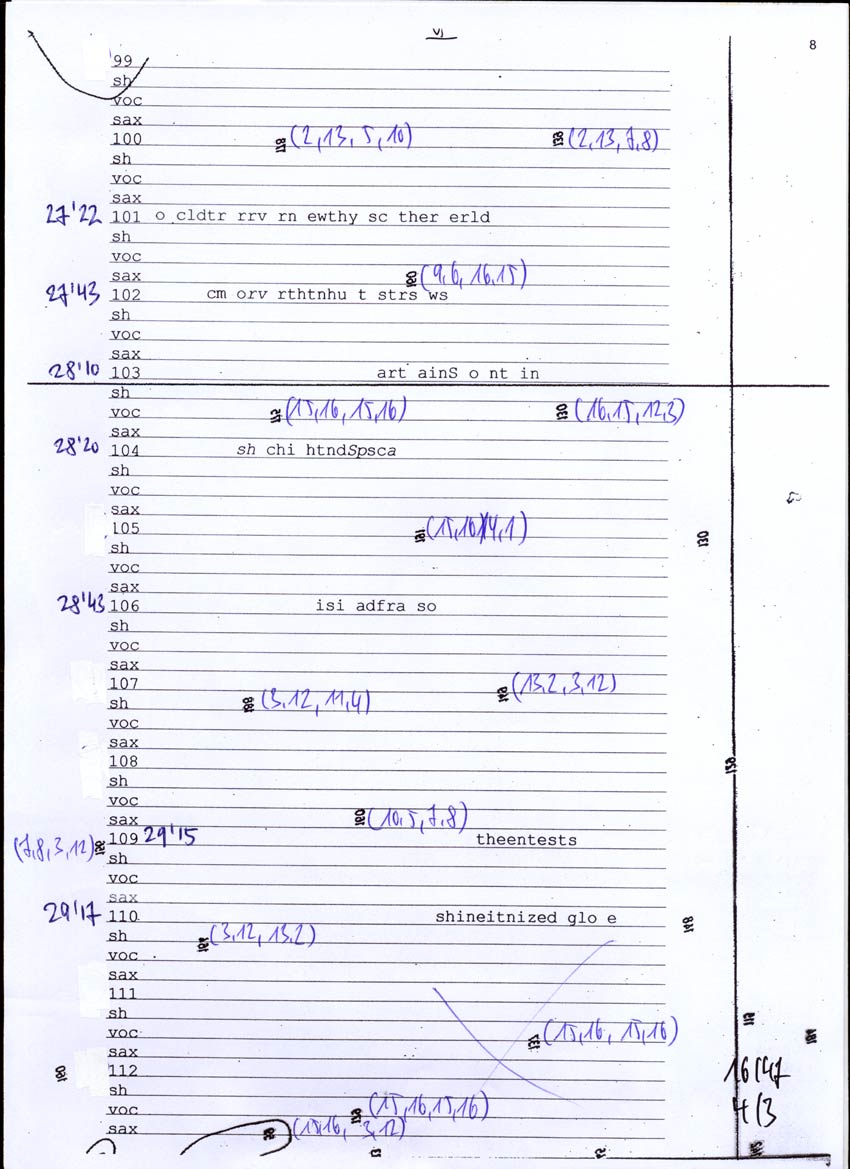 8
99
sh
voc
sax
100 (2,13,5,10) (2,13,7,8)
sh
voc
sax
27'22 101 o cldtr rrv rn ewthy sc ther erld
sh
voc
sax (9,6,16,15)
27'43 102 cm orv rthtnhu t strs ws
sh
voc
sax
28'10 103 art ainS o nt in
sh
voc (15,16,15,16) 130 (16,15,12,3)
sax
28'20 104 sh chi htndSpsca
sh
voc
sax
105 (15,16)(4,1) 130
sh
voc
sax
28'43 106 isi adfra so
sh
voc
sax
107 (13,2,3,12)
sh (3,12,11,4)
voc
sax
108
sh
voc
sax (10,5,7,8)
(7,8,3,12) 109 29'15 theentests
sh
voc
sax
29'17 110 shineitnized glo e
sh (3,12,13,2)
voc
sax
111
sh
voc (15,16,15,16)
sax
112 16(47
sh
voc (15,16,15,16) 4(3
sax (15,16,3,12)